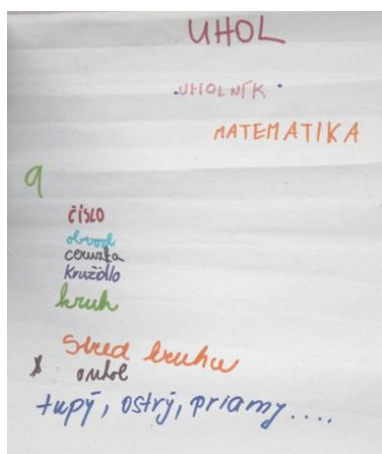 UHOL
UHOLNÍK
MATEMATIKA
9
číslo
obvod
ceruzka
Kružidlo
kruh
Stred kruhu
tupý, ostrý, priamy....